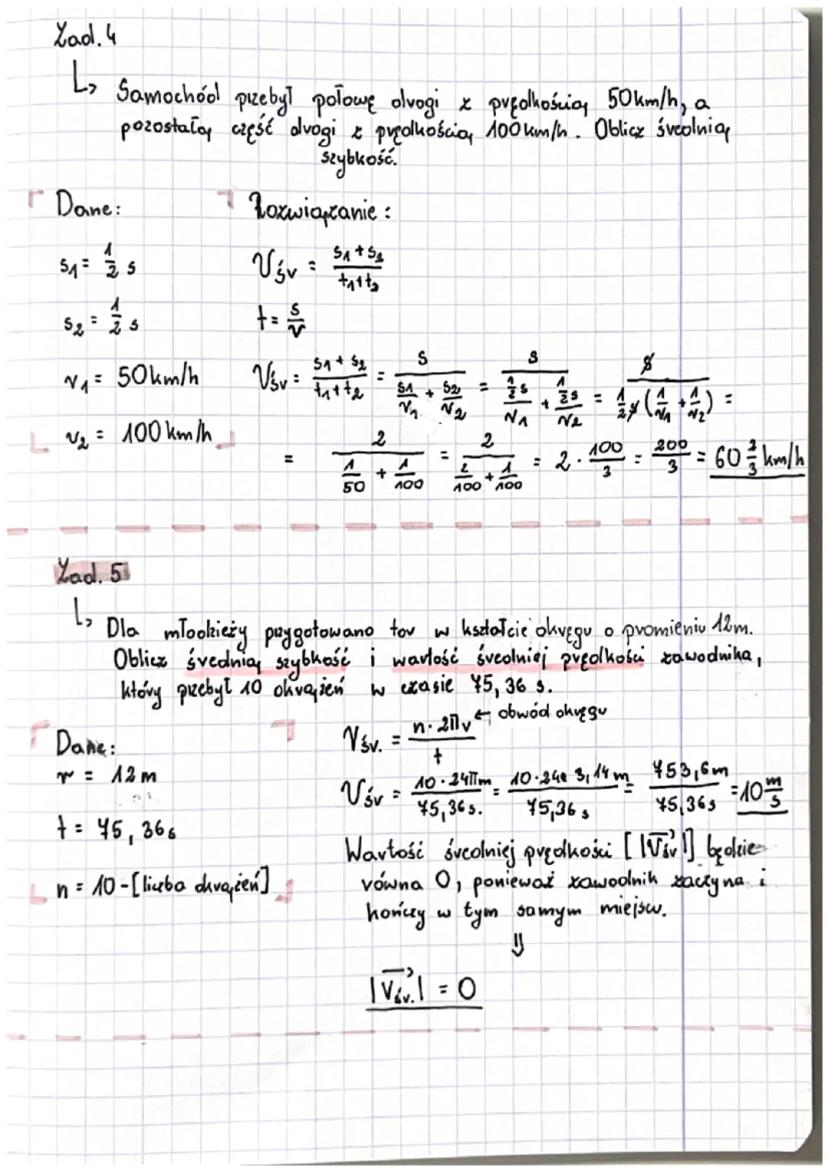 Zad. 4
↳ Samochód przebył połowę drogi z prędkością 50km/h, a
pozostałą część drogi z prędkością 100km/h. Oblicz średnią
szybkość.
Dane:
Rozwiązanie:
s₁ = 1/2 s
Vśr = (s₁+s₂)/(t₁+t₂)
s₂ = 1/2 s
t = s/v
v₁ = 50km/h
Vśr = (s₁+s₂)/(t₁+t₂) = s/(s₁/v₁ + s₂/v₂) = s/(1/2 s/v₁ + 1/2 s/v₂) = s/(1/2 s(1/v₁ + 1/v₂)) =
v₂ = 100km/h
= 2/(1/50 + 1/100) = 2/(2/100 + 1/100) = 2 · 100/3 = 200/3 = 60 2/3 km/h
Zad. 5
↳ Dla młodzieży przygotowano tor w kształcie okręgu o promieniu 12m.
Oblicz średnią szybkość i wartość średniej prędkości zawodnika,
który przebył 10 okrążeń w czasie 75,36 s.
Dane:
Vśr. = n·2Πr/t ← obwód okręgu
r = 12m
Vśr = 10·24Πm/75,36s. = 10·24· 3,14m/75,36s = 753,6m/75,36s = 10 m/s
t = 75,36s
Wartość średniej prędkości [|V⃗śr|] będzie
n = 10-[liczba okrążeń]
równa 0, ponieważ zawodnik zaczyna i
kończy w tym samym miejscu.
⇓
|V⃗śr.| = 0